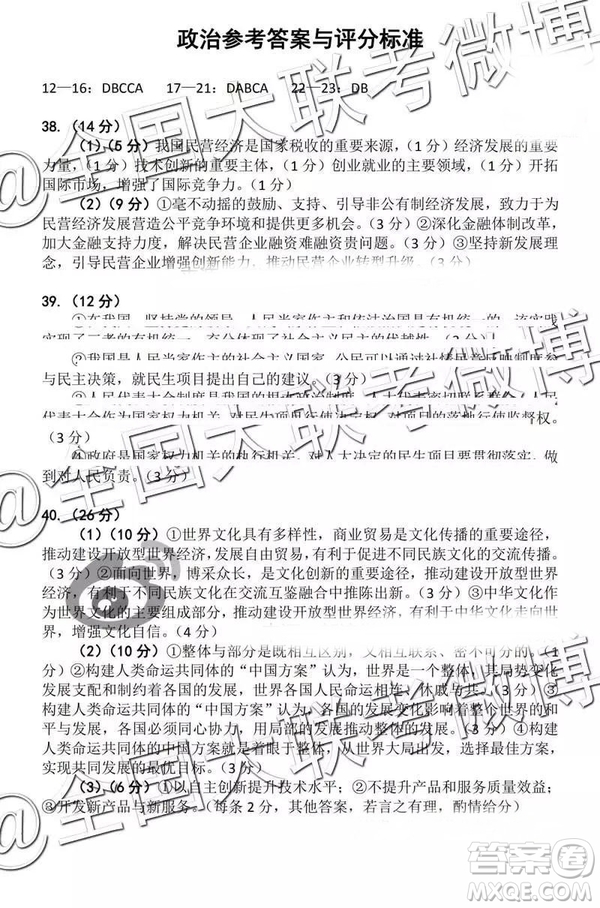 政治参考答案与评分标准
12—16：DBCCA 17—21：DABCA 22—23：DB
38.（14 分）
（1）（5 分）我国民营经济是国家税收的重要来源，（1 分）经济发展的重要
力量，（1 分）技术创新的重要主体，（1 分）创业就业的主要领域，（1 分）开拓
国际市场，增强了国际竞争力。（1 分）
（2）（9 分）①毫不动摇的鼓励、支持、引导非公有制经济发展，致力于为
民营经济发展营造公平竞争环境和提供更多机会。（3 分）②深化金融体制改革，
加大金融支持力度，解决民营企业融资难融资贵问题。（3 分）③坚持新发展理
念，引导民营企业增强创新能力，推动民营企业转型升级。（3 分）
39.（12 分）
①在我国，坚持党的领导、人民当家作主和依法治国是有机统一的，该实践
实现了三者的有机统一，充分体现了社会主义民主的优越性。（3 分）
②我国是人民当家作主的社会主义国家，公民可以通过社情民意反映制度参
与民主决策，就民生项目提出自己的建议。（3 分）
③人民代表大会制度是我国的根本政治制度，人大代表密切联系群众，人民
代表大会作为国家权力机关，对民生项目行使决定权，对项目的落实行使监督权。
（3 分）
④政府是国家权力机关的执行机关，对人大决定的民生项目要贯彻落实，做
到对人民负责。（3 分）
40.（26 分）
（1）（10 分）①世界文化具有多样性，商业贸易是文化传播的重要途径，
推动建设开放型世界经济，发展自由贸易，有利于促进不同民族文化的交流传播。
（3 分）②面向世界，博采众长，是文化创新的重要途径，推动建设开放型世界
经济，有利于不同民族文化在交流互鉴融合中推陈出新。（3 分）③中华文化作
为世界文化的主要组成部分，推动建设开放型世界经济，有利于中华文化走向世
界，增强文化自信。（4 分）
（2）（10 分）①整体与部分是既相互区别，又相互联系、密不可分的。（1
分）②构建人类命运共同体的“中国方案”认为，世界是一个整体，其局势变化
发展影响和制约着各国的发展，世界各国人民命运相连、休戚与共。（3 分）③
构建人类命运共同体的“中国方案”认为，各国的发展变化影响着整个世界的和
平与发展，各国必须同心协力，用局部的发展推动整体的发展。（3 分）④构建
人类命运共同体的中国方案就是着眼于整体，从世界大局出发，选择最佳方案，
实现整体的最优目标。（3 分）
（3）（6 分）①以自主创新提升技术水平；②不断提升产品和服务质量效益；
③开发新产品与新服务。（每条 2 分，其他答案，若言之有理，酌情给分）
@全国大联考微博
@全国大联考微博
@全国大联考微博
答案圈
MXQE.COM